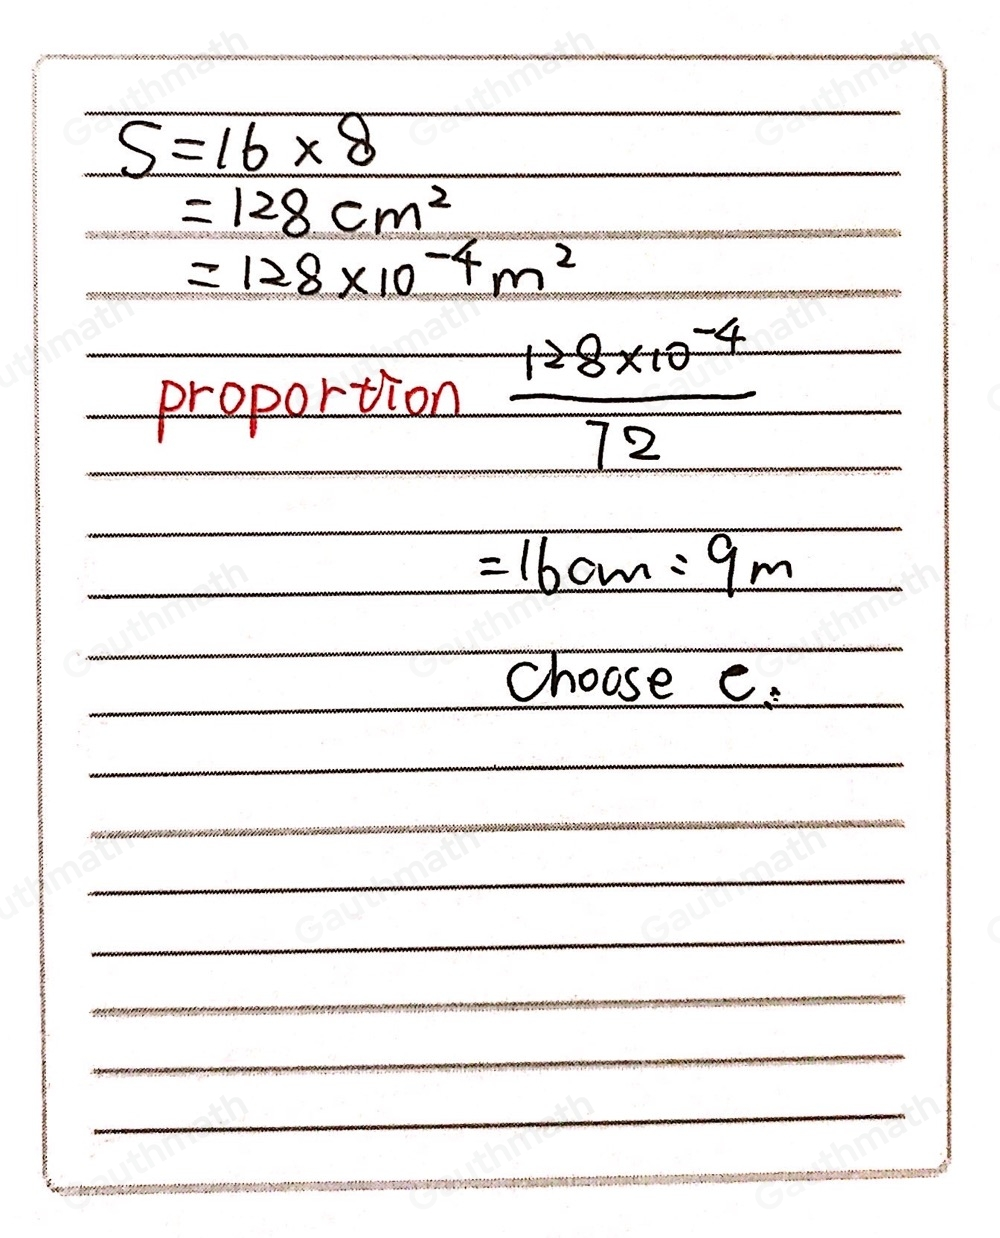 S=16×8
=128cm²
=128×10⁻⁴m²
proportion 128×10⁻⁴/72
=16cm:9m
choose c.
Gauthmath